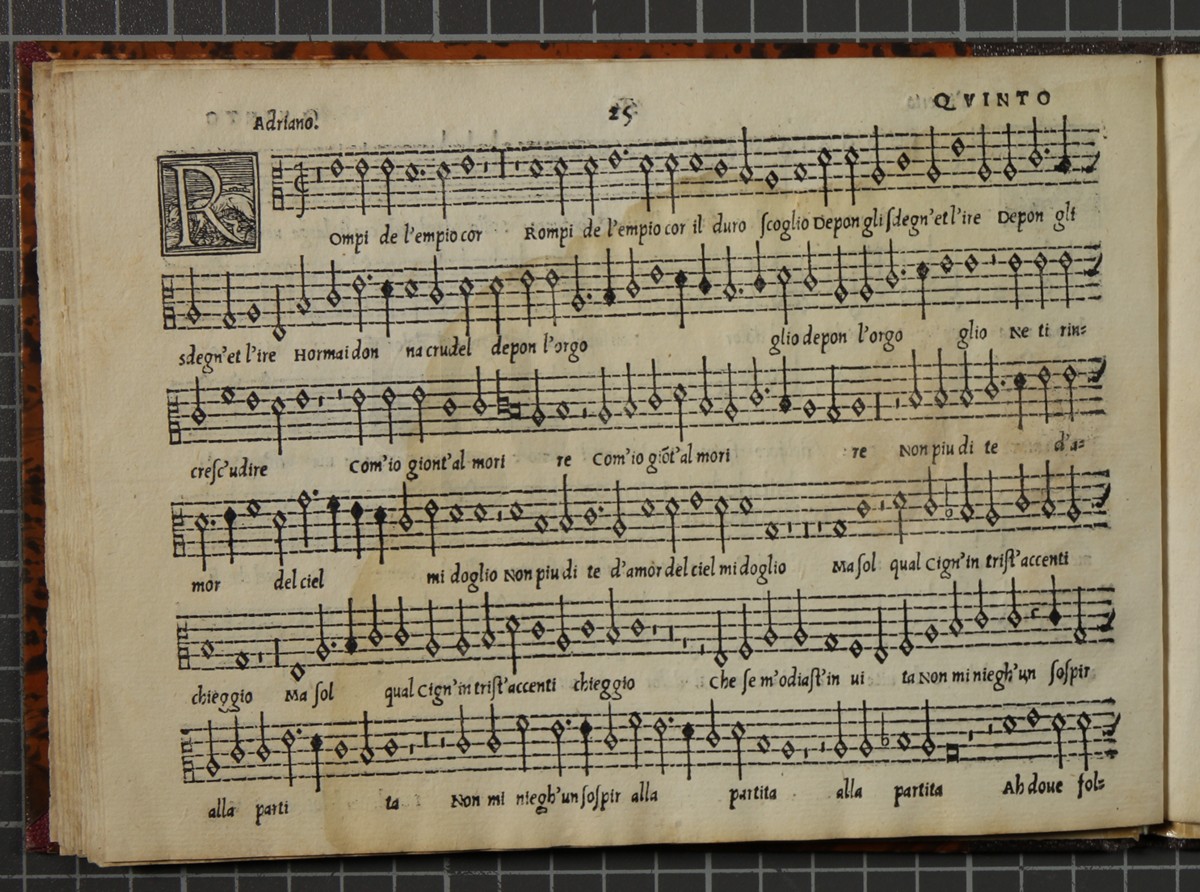 Adriano. 25 QVINTO
R Ompi de l'empio cor Rompi de l'empio cor il duro ſcoglio Depon gli ſdegn'et l'ire Depon gli
sdegn'et l'ire Hormai don na crudel depon l'orgo glio depon l'orgo glio Ne ti rin=
creſc'udire Com'io giont'al mori re Com'io giõt'al mori re Non piu di te d'a=
mor del ciel mi doglio Non piu di te d'amor del ciel mi doglio Ma ſol qual Cign'in triſt'accenti
chieggio Ma ſol qual Cign'in triſt'accenti chieggio Che ſe m'odiaſt'in ui ta Non mi niegh'un ſoſpir
alla parti ta Non mi niegh'un ſoſpir alla partita alla partita Ah doue ſol=